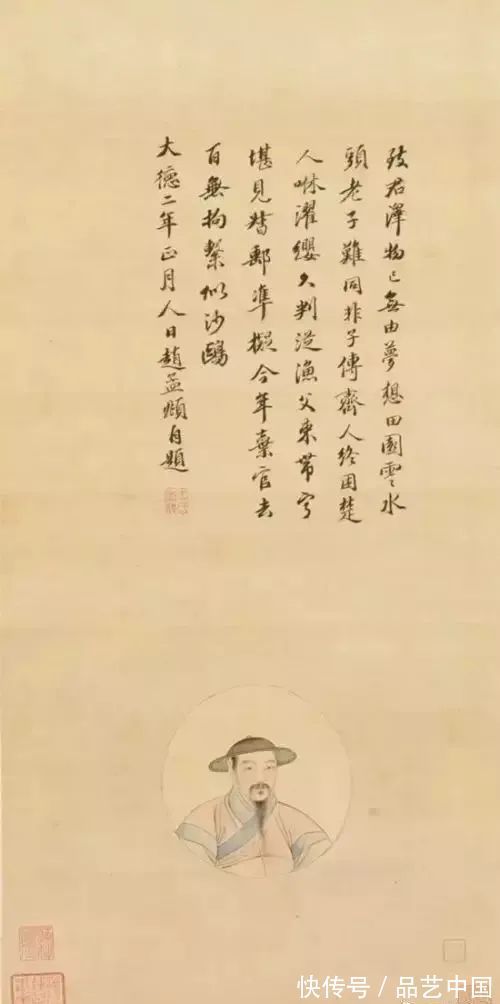 致君澤物已無由夢想田園雲水
頭老子難同非子傳齊人終困楚
人咻濯纓久判從漁父束帶寧
堪見督郵準擬今年棄官去
百無拘繫似沙鷗
大德二年正月人日趙孟頫自題
快传号／品艺中国